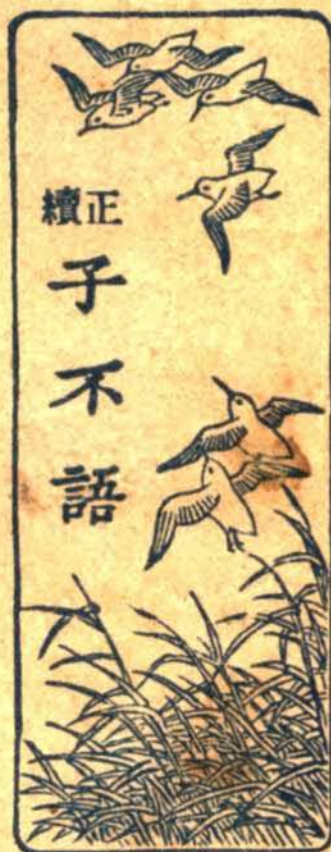 正續
子不語